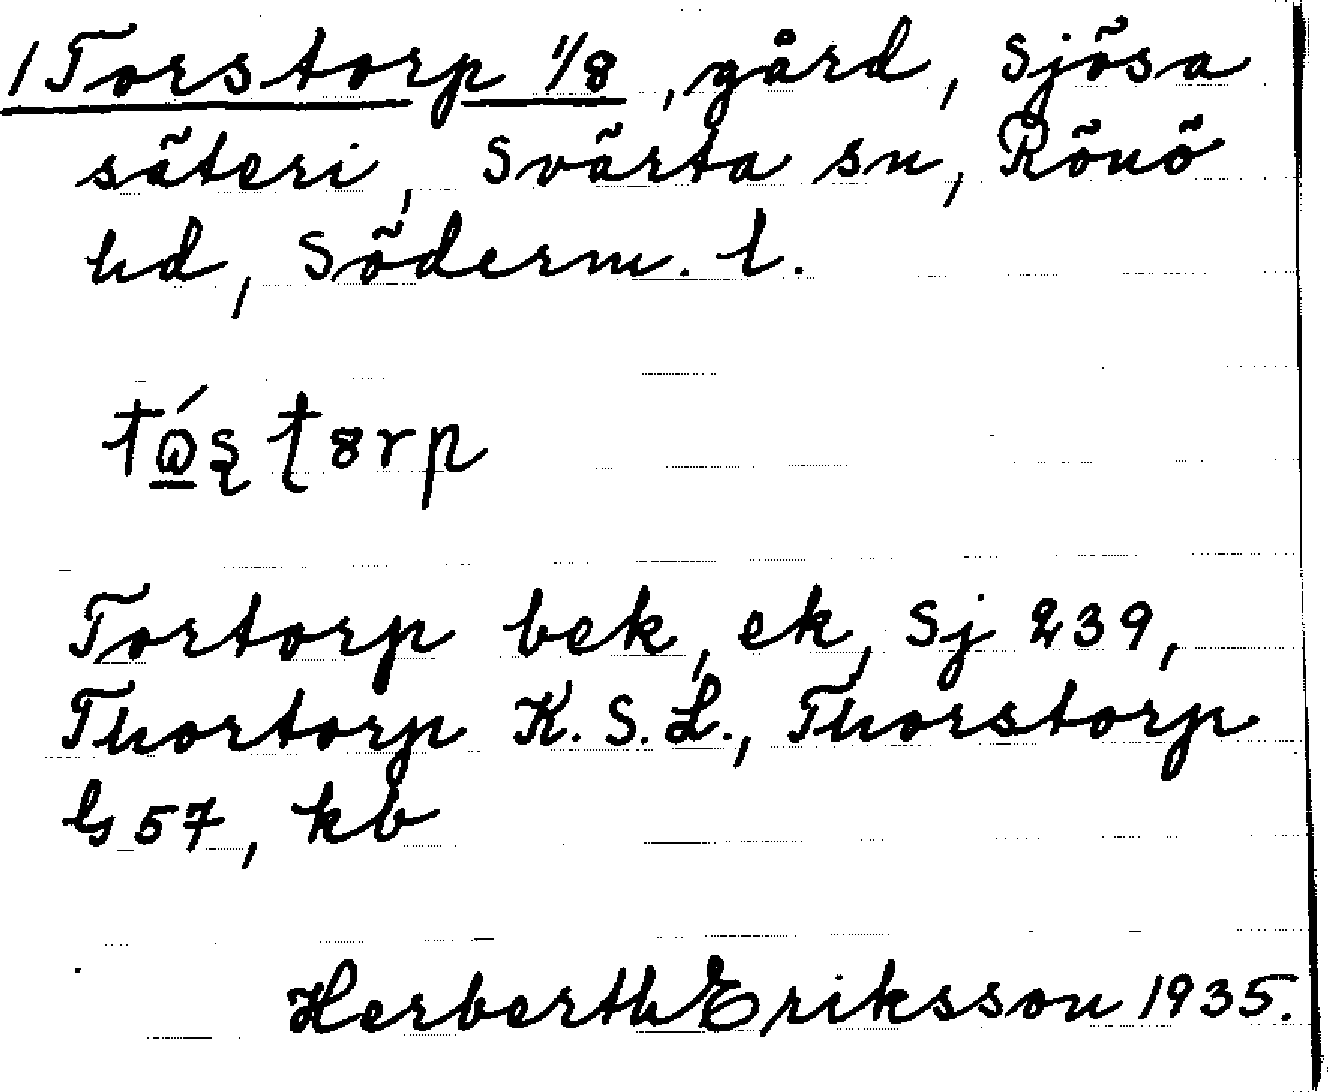 1 Torstorp 1/8, gård, Sjösa
säteri, Svärta sn, Rönö
hd, Söderm. l.
Tortorp bek, ek, Sj 239,
Thortorp K. S. L., Thorstorp
G 57, kb
Herberth Eriksson 1935.